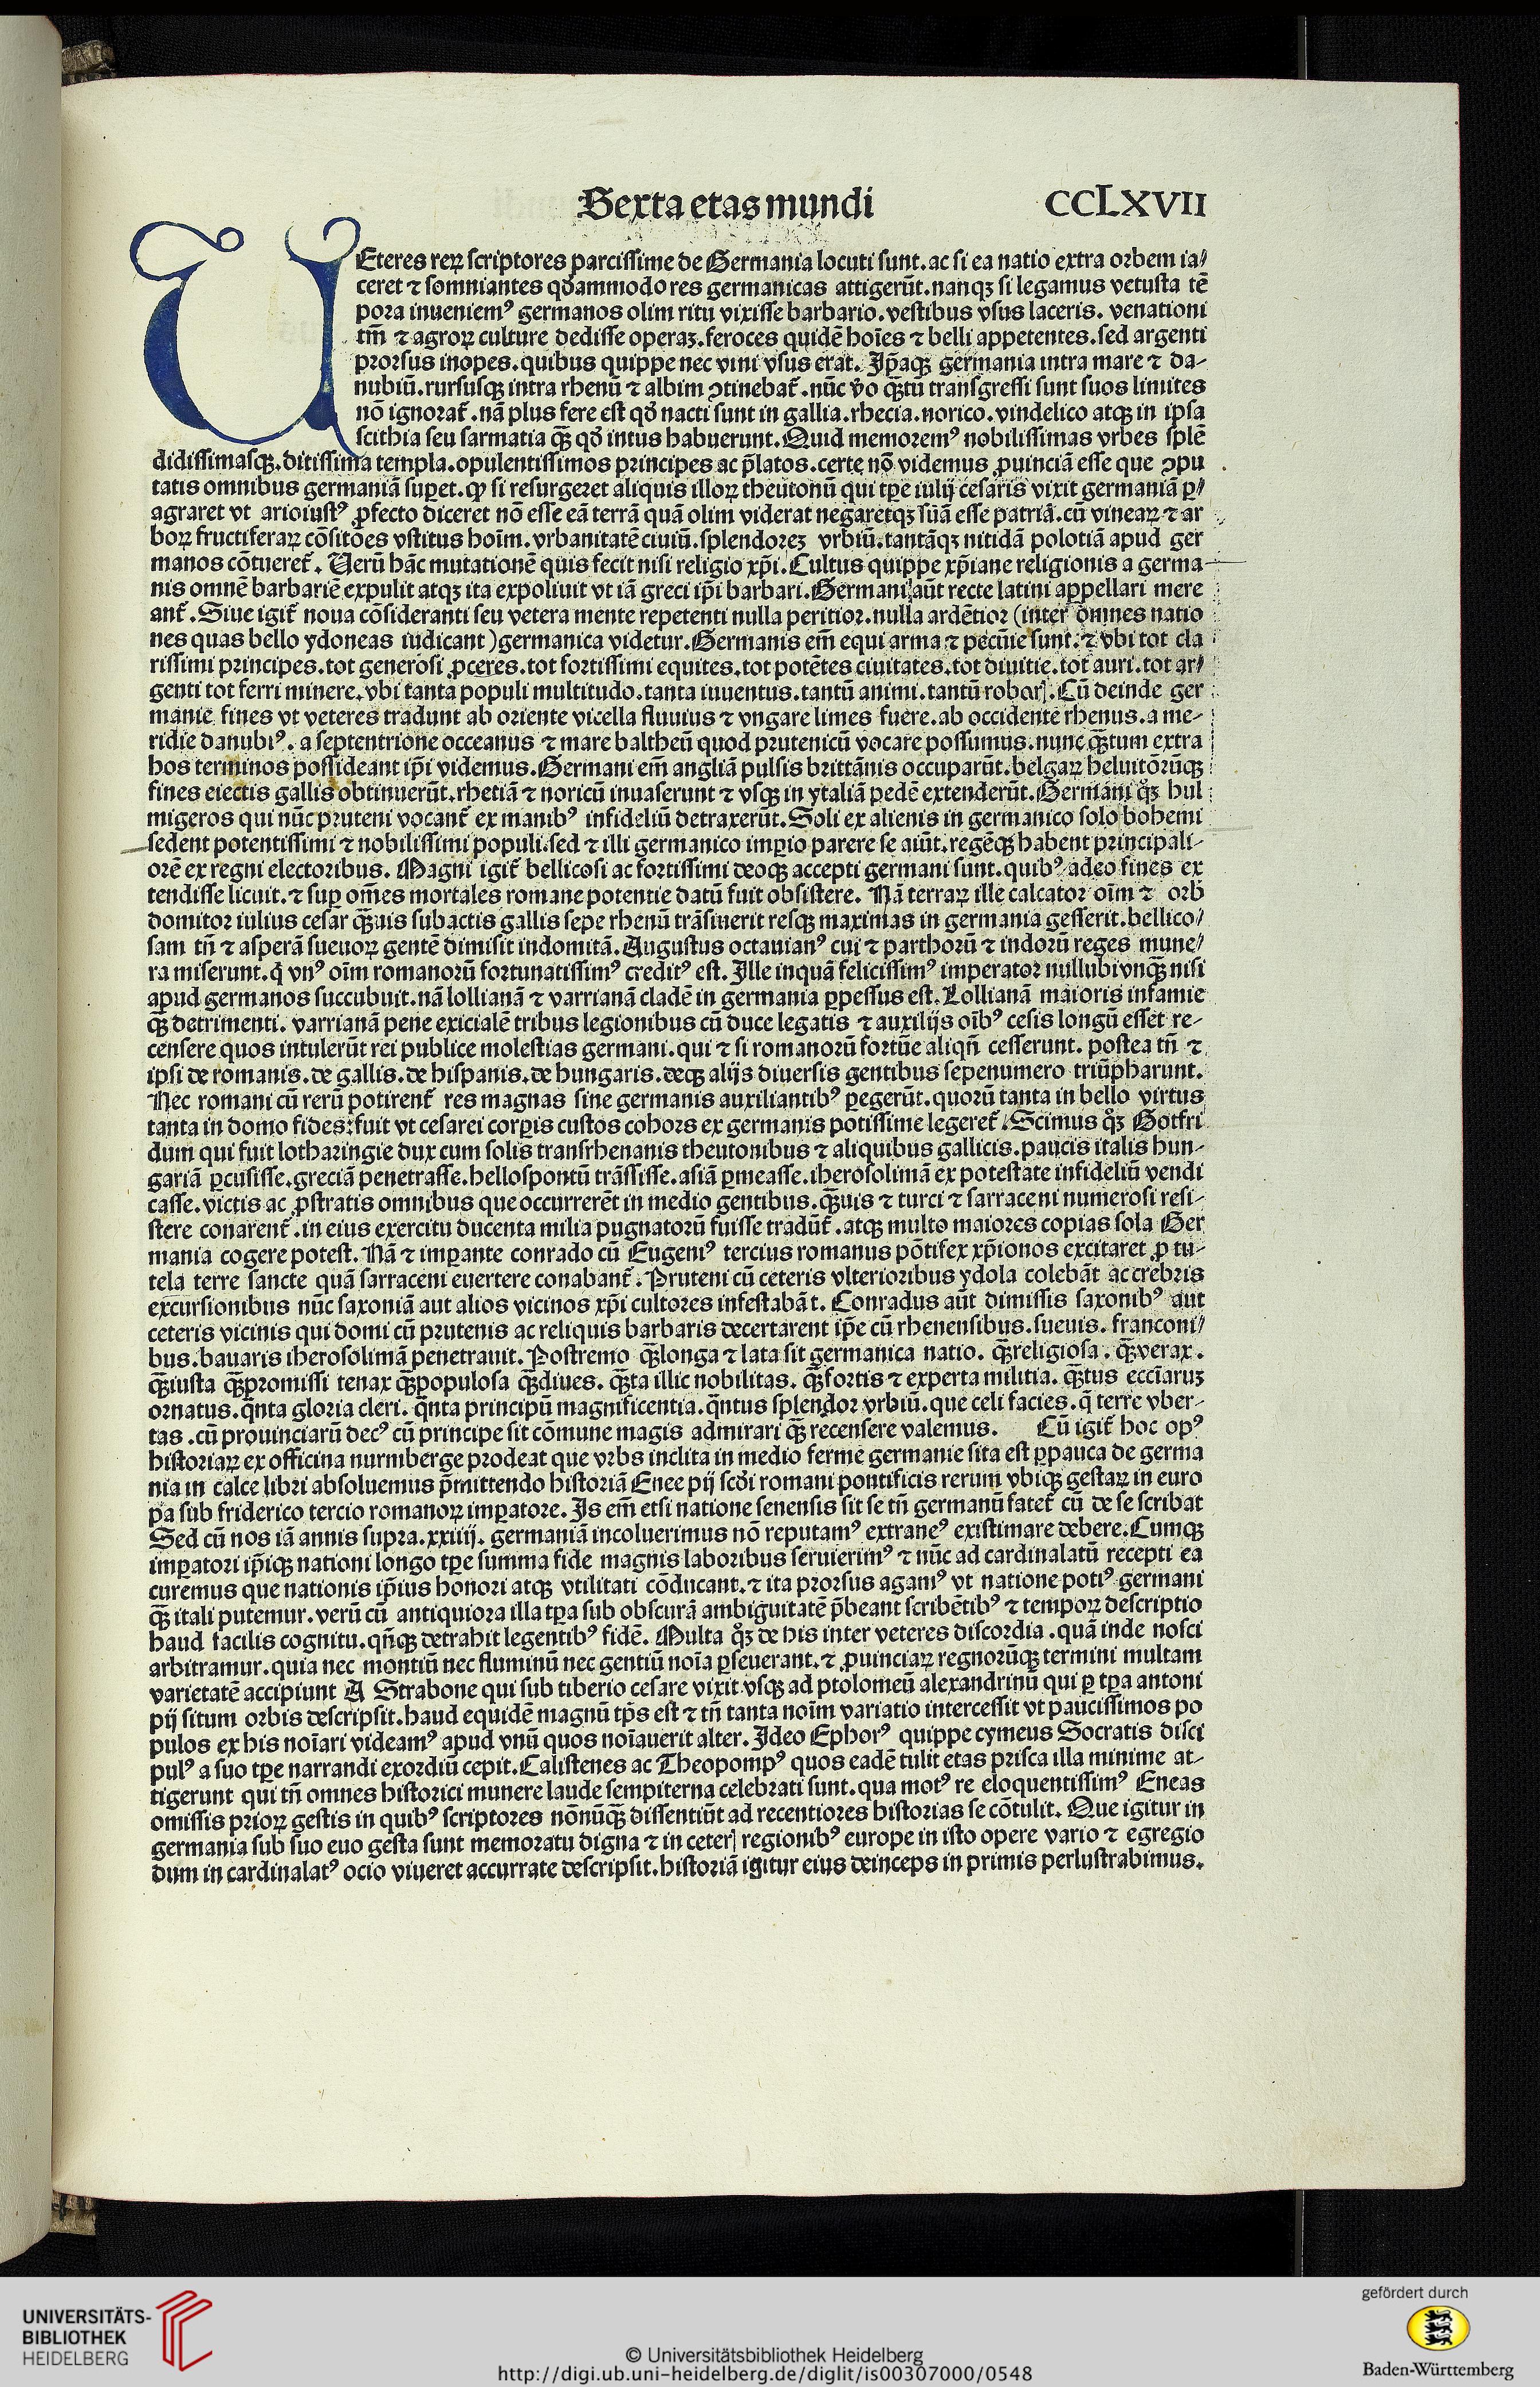 Sexta etas mundi CCLXVII
VEteres rerꝝ scriptores parcissime de Germania locuti sunt. ac si ea natio extra orbem ia⸗
ceret ⁊ somniantes qđammodo res germanicas attigerūt. nanqꝫ si legamus vetusta tē
pora inueniemꝰ germanos olim ritu vixisse barbario. vestibus vsus laceris. venationi
tm̄ ⁊ agroꝝ culture dedisse operaꝫ. feroces quidē hoīes ⁊ belli appetentes. sed argenti
prorsus inopes. quibus quippe nec vini vsus erat. Ip̄aqꝫ germania intra mare ⁊ da-
nubiū. rursusqꝫ intra rhenū ⁊ albim ↄtinebat᷑. nūc v̄o qꝫ̄tū transgressi sunt suos limites
nō ignorat᷑. nā plus fere est qđ nacti sunt in gallia. rhecia. norico. vindelico atqꝫ in ipsa
scithia seu sarmatia qꝫ̄ qđ intus habuerunt. Quid memoremꝰ nobilissimas vrbes splē
didissimasqꝫ. ditissima templa. opulentissimos principes ac p̄latos. certe nō videmus ꝓuinciā esse que ↄpu
tatis omnibus germaniā suꝑet. ꝙ si resurgeret aliquis illoꝝ theutonū qui tꝑe iulij cesaris vixit germaniā ꝑ⸗
agraret vt arioiustꝰ ꝓfecto diceret nō esse eā terrā quā olim viderat negaretqꝫ suā esse patriā. cū vineaꝝ ⁊ ar
boꝝ fructiferaꝝ cōsitōes vstitus hoīm. vrbanitatē ciuiū. splendoreꝫ vrbiū. tantāqꝫ nitidā polotiā apud ger
manos cōtueret᷑. Verū hāc mutationē quis fecit nisi religio xp̄i. Cultus quippe xp̄iane religionis a germa
nis omnē barbariē expulit atqꝫ ita expoliuit vt iā greci ip̄i barbari. Germani aūt recte latini appellari mere
ant᷑. Siue igit᷑ noua cōsideranti seu vetera mente repetenti nulla peritior. nulla ardētior (inter omnes natio
nes quas bello ydoneas iudicant) germanica videtur. Germanis em̄ equi arma ⁊ pecūie sunt. ⁊ vbi tot cla
rissimi principes. tot generosi ꝓceres. tot fortissimi equites. tot potētes ciuitates. tot diuitie. tot auri. tot ar⸗
genti tot ferri minere. vbi tanta populi multitudo. tanta iuuentus. tantū animi. tantū roborꝭ. Cū deinde ger
manie fines vt veteres tradunt ab oriente vicella fluuius ⁊ vngare limes fuere. ab occidente rhenus. a me-
ridie danubiꝰ. a septentrione occeanus ⁊ mare baltheū quod prutenicū vocare possumus. nunc qꝫ̄tum extra
hos terminos possideant ip̄i videmus. Germani em̄ angliā pulsis brittānis occuparūt. belgaꝝ heluitōrūqꝫ
fines eiectis gallis obtinuerūt. rhetiā ⁊ noricū inuaserunt ⁊ vsqꝫ in ytaliā pedē extenderūt. Germani qͦꝫ hul
migeros qui nūc pruteni vocant᷑ ex manibꝰ infideliū detraxerūt. Soli ex alienis in germanico solo bohemi
sedent potentissimi ⁊ nobilissimi populi. sed ⁊ illi germanico imꝑio parere se aiūt. regēqꝫ habent principali-
orē ex regni electoribus. Magni igit᷑ bellicosi ac fortissimi deoqꝫ accepti germani sunt. quibꝰ adeo fines ex
tendisse licuit. ⁊ suꝑ om̄es mortales romane potentie datū fuit obsistere. Nā terraꝝ ille calcator oīm ⁊ orb̄
domitor iulius cesar qꝫ̄uis subactis gallis sepe rhenū trāsiuerit resqꝫ maximas in germania gesserit. bellico⸗
sam tn̄ ⁊ asperā sueuoꝝ gentē dimisit indomitā. Augustus octauianꝰ cui ⁊ parthorū ⁊ indorū reges mune⸗
ra miserunt. q̇ vnꝰ oīm romanorū fortunatissimꝰ creditꝰ est. Ille inquā felicissimꝰ imperator nullubi vnqꝫ̄ nisi
apud germanos succubuit. nā lollianā ⁊ varrianā cladē in germania ꝑpessus est. Lollianā maioris infamie
qꝫ̄ detrimenti. varrianā pene exicialē tribus legionibus cū duce legatis ⁊ auxilijs oībꝰ cesis longū esset re-
censere quos intulerūt rei publice molestias germani. qui ⁊ si romanorū fortūe aliqn̄ cesserunt. postea tn̄ ⁊
ipsi de romanis. de gallis. de hispanis. de hungaris. deqꝫ alijs diuersis gentibus sepenumero triūpharunt.
Nec romani cū rerū potirent᷑ res magnas sine germanis auxiliantibꝰ ꝑegerūt. quorū tanta in bello virtus
tanta in domo fides: fuit vt cesarei corꝑis custos cohors ex germanis potissime legeret᷑. Scimus qͦꝫ Gotfri
dum qui fuit lotharingie dux cum solis transrhenanis theutonibus ⁊ aliquibus gallicis. paucis italis hun-
gariā ꝑcusisse. greciā penetrasse. hellospontū trāssisse. asiā ꝑmeasse. iherosolimā ex potestate infideliū vendi
casse. victis ac ꝓstratis omnibus que occurrerēt in medio gentibus. qꝫ̄uis ⁊ turci ⁊ sarraceni numerosi resi-
stere conarent᷑. in eius exercitu ducenta milia pugnatorū fuisse tradūt᷑. atqꝫ multo maiores copias sola Ger
mania cogere potest. Nā ⁊ imꝑante conrado cū Eugeniꝰ tercius romanus pōtifex xp̄ionos excitaret ꝓ tu-
tela terre sancte quā sarraceni euertere conabant᷑. Pruteni cū ceteris vlterioribus ydola colebāt ac crebris
excursionibus nūc saxoniā aut alios vicinos xp̄i cultores infestabāt. Conradus aūt dimissis saxonibꝰ aut
ceteris vicinis qui domi cū prutenis ac reliquis barbaris decertarent ip̄e cū rhenensibus. sueuis. franconi⸗
bus. bauaris iherosolimā penetrauit. Postremo qꝫ̄ longa ⁊ lata sit germanica natio. qꝫ̄ religiosa. qꝫ̄ verax.
qꝫ̄ iusta qꝫ̄ promissi tenax qꝫ̄ populosa qꝫ̄ diues. qꝫ̄ta illic nobilitas. qꝫ̄ fortis ⁊ experta militia. qꝫ̄tus ecciaruꝫ
ornatus. qn̄ta gloria cleri. qn̄ta principū magnificentia. qn̄tus splendor vrbiū. que celi facies. q̄ terre vber-
tas. cū prouinciarū decꝰ cū principe sit cōmune magis admirari qꝫ̄ recensere valemus. Cū igit᷑ hoc opꝰ
historiaꝝ ex officina nurmberge prodeat que vrbs inclita in medio ferme germanie sita est ꝑpauca de germa
nia in calce libri absoluemus p̄mittendo historiā Enee pij scđi romani pontificis rerum vbiqꝫ gestaꝝ in euro
pa sub friderico tercio romanoꝝ imꝑatore. Is em̄ etsi natione senensis sit se tn̄ germanū fatet᷑ cū de se scribat
Sed cū nos iā annis supra. xxiiij. germaniā incoluerimus nō reputamꝰ extraneꝰ existimare debere. Cumqꝫ
imꝑatori ip̄iqꝫ nationi longo tꝑe summa fide magnis laboribus seruierimꝰ ⁊ nūc ad cardinalatū recepti ea
curemus que nationis ip̄ius honori atqꝫ vtilitati cōducant. ⁊ ita prorsus agamꝰ vt natione potiꝰ germani
qꝫ̄ itali putemur. verū cū antiquiora illa tꝑa sub obscurā ambiguitatē p̄beant scribētibꝰ ⁊ tempoꝝ descriptio
haud facilis cognitu. qn̄qꝫ detrahit legentibꝰ fidē. Multa qͦꝫ de his inter veteres discordia. quā inde nosci
arbitramur. quia nec montiū nec fluminū nec gentiū noīa ꝑseuerant. ⁊ ꝓuinciaꝝ regnorūqꝫ termini multam
varietatē accipiunt A Strabone qui sub tiberio cesare vixit vsqꝫ ad ptolomeū alexandrinū qui ꝑ tꝑa antoni
pij situm orbis descripsit. haud equidē magnū tp̄s est ⁊ tn̄ tanta noīm variatio intercessit vt paucissimos po
pulos ex his noīari videamꝰ apud vnū quos noīauerit alter. Ideo Ephorꝰ quippe cymeus Socratis disci
pulꝰ a suo tꝑe narrandi exordiū cepit. Calistenes ac Theopompꝰ quos eadē tulit etas prisca illa minime at-
tigerunt qui tn̄ omnes historici munere laude sempiterna celebrati sunt. qua motꝰ re eloquentissimꝰ Eneas
omissis prioꝝ gestis in quibꝰ scriptores nōnūqꝫ̄ dissentiūt ad recentiores historias se cōtulit. Que igitur in
germania sub suo euo gesta sunt memoratu digna ⁊ in ceterꝭ regionibꝰ europe in isto opere vario ⁊ egregio
dum in cardinalatꝰ ocio viueret accurrate descripsit. historiā igitur eius deinceps in primis perlustrabimus.
UNIVERSITÄTS-
BIBLIOTHEK
HEIDELBERG
© Universitätsbibliothek Heidelberg
http://digi.ub.uni-heidelberg.de/diglit/is00307000/0548
gefördert durch
Baden-Württemberg